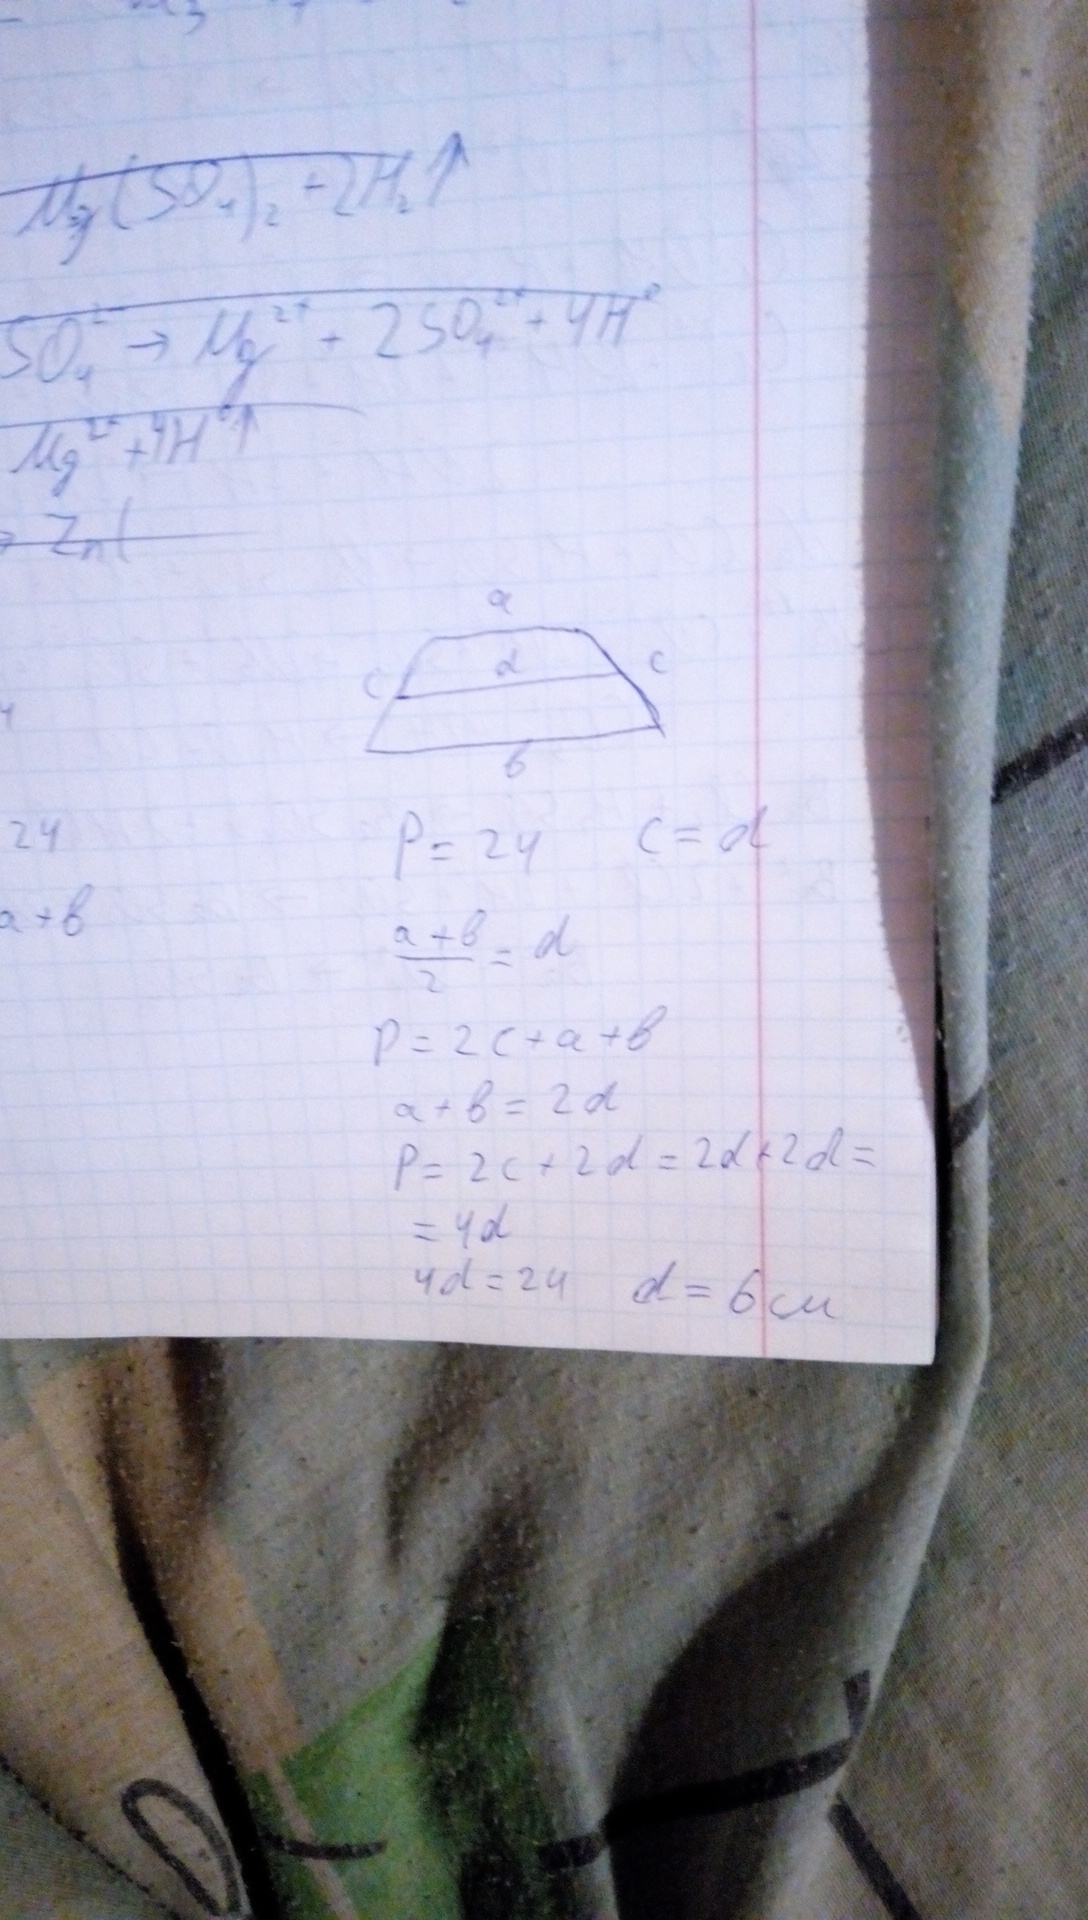 Mg(SO₄)₂ + 2H₂↑
SO₄²⁻ → Mg²⁺ + 2SO₄²⁺ + 4H⁰
Mg²⁺ + 4H⁰↑
→ Zn(
a
c d c
b
24
P = 24 c = d
a + b
(a + b)/2 = d
P = 2c + a + b
a + b = 2d
P = 2c + 2d = 2d + 2d =
= 4d
4d = 24 d = 6 см